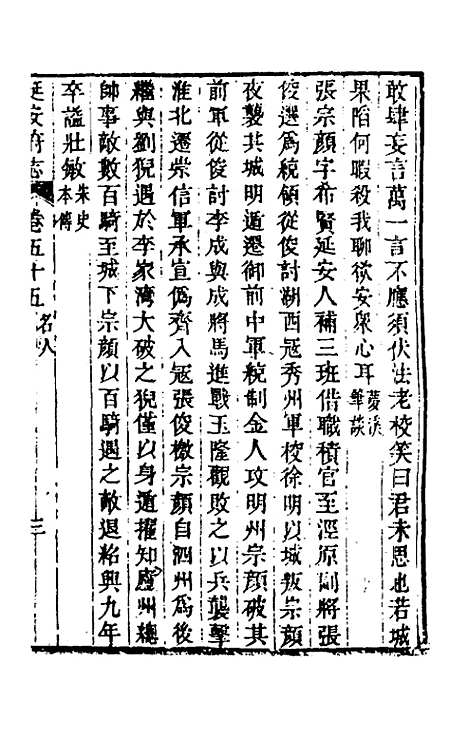 敢肆妄言萬一言不應須伏法老校笑曰君未思也若城
果陷何暇殺我聊欲安衆心耳夢溪筆談
張宗顏字希賢延安人補三班借職積官至涇原副將張
俊選爲統領從俊討浙西冦秀州軍校徐明以城叛宗顏
夜襲其城明遁遷御前中軍統制金人攻明州宗顏破其
前軍從俊討李成與成將馬進戰玉隆觀敗之以兵襲擊
淮北遷崇信軍承宣僞齊入冦張俊檄宗顏自泗州爲後
繼與劉猊遇於李家灣大破之猊僅以身遁擢知廬州總
帥事敵數百騎至城下宗顏以百騎遇之敵退紹興九年
卒謚壯敏宋史本傳
延安府志 卷五十五 名人 三